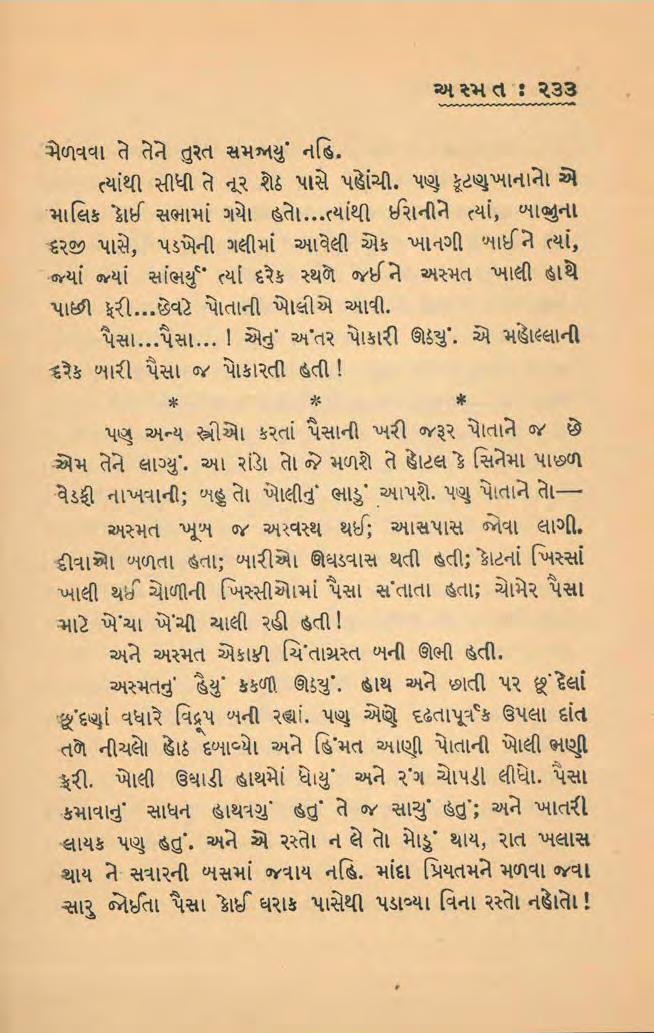 અસ્મત : ૨૩૩
મેળવવા તે તેને તુરત સમજાયું નહિ.
ત્યાંથી સીધી તે નૂર શેઠ પાસે પહોંચી. પણ કૂટણખાનાનો એ
માલિક કોઈ સભામાં ગયો હતો...ત્યાંથી ઈરાનીને ત્યાં, બાજુના
દરજી પાસે, પડખેની ગલીમાં આવેલી એક ખાનગી બાઈને ત્યાં,
જ્યાં જ્યાં સાંભર્યું ત્યાં દરેક સ્થળે જઈને અસ્મત ખાલી હાથે
પાછી ફરી...છેવટે પોતાની ખોલીએ આવી.
પૈસા...પૈસા... ! એનું અંતર પોકારી ઊઠ્યું. એ મહોલ્લાની
દરેક બારી પૈસા જ પોકારતી હતી !
* * *
પણ અન્ય સ્ત્રીઓ કરતાં પૈસાની ખરી જરૂર પોતાને જ છે
એમ તેને લાગ્યું. આ રાંડો તો જે મળશે તે હોટલ કે સિનેમા પાછળ
વેડફી નાખવાની; બહુ તો ખોલીનું ભાડું આપશે. પણ પોતાને તો—
અસ્મત ખૂબ જ અસ્વસ્થ થઈ; આસપાસ જોવા લાગી.
દીવાઓ બળતા હતા; બારીઓ ઊઘડવાસ થતી હતી; કોટનાં ખિસ્સાં
ખાલી થઈ ચોળીની ખિસ્સીઓમાં પૈસા સંતાતા હતા; ચોમેર પૈસા
માટે ખેંચા ખેંચી ચાલી રહી હતી !
અને અસ્મત એકાકી ચિંતાગ્રસ્ત બની ઊભી હતી.
અસ્મતનું હૈયું કકળી ઊઠ્યું. હાથ અને છાતી પર છૂંદેલાં
છૂંદણાં વધારે વિદ્રૂપ બની રહ્યાં. પણ એણે દૃઢતાપૂર્વક ઉપલા દાંત
તળે નીચલો હોઠ દબાવ્યો અને હિંમત આણી પોતાની ખોલી ભણી
ફરી. ખોલી ઉઘાડી હાથમોં ધોયું અને રંગ ચોપડી લીધો. પૈસા
કમાવાનું સાધન હાથવગું હતું તે જ સાચું હતું; અને ખાતરી
લાયક પણ હતું. અને એ રસ્તો ન લે તો મોડું થાય, રાત ખલાસ
થાય ને સવારની બસમાં જવાય નહિ. માંદા પ્રિયતમને મળવા જવા
સારુ જોઈતા પૈસા કોઈ ઘરાક પાસેથી પડાવ્યા વિના રસ્તો નહોતો !